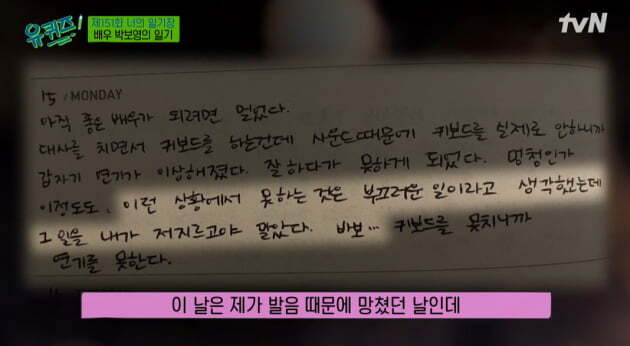 유퀴즈!
제151화 너의 일기장
배우 박보영의 일기
tvN
15 / MONDAY
아직 좋은 배우가 되려면 멀었다.
대사를 치면서 키보드를 하는건데 사운드때문에 키보드를 실제로 안하니까
갑자기 연기가 이상해졌다. 잘 하다가 못하게 되었다. 멍청인가
이정도도. 이런 상황에서 못하는 것은 부끄러운 일이라고 생각했는데
그 일을 내가 저지르고야 말았다. 바보... 키보드를 못치니까
연기를 못한다.
이 날은 제가 발음 때문에 망쳤던 날인데